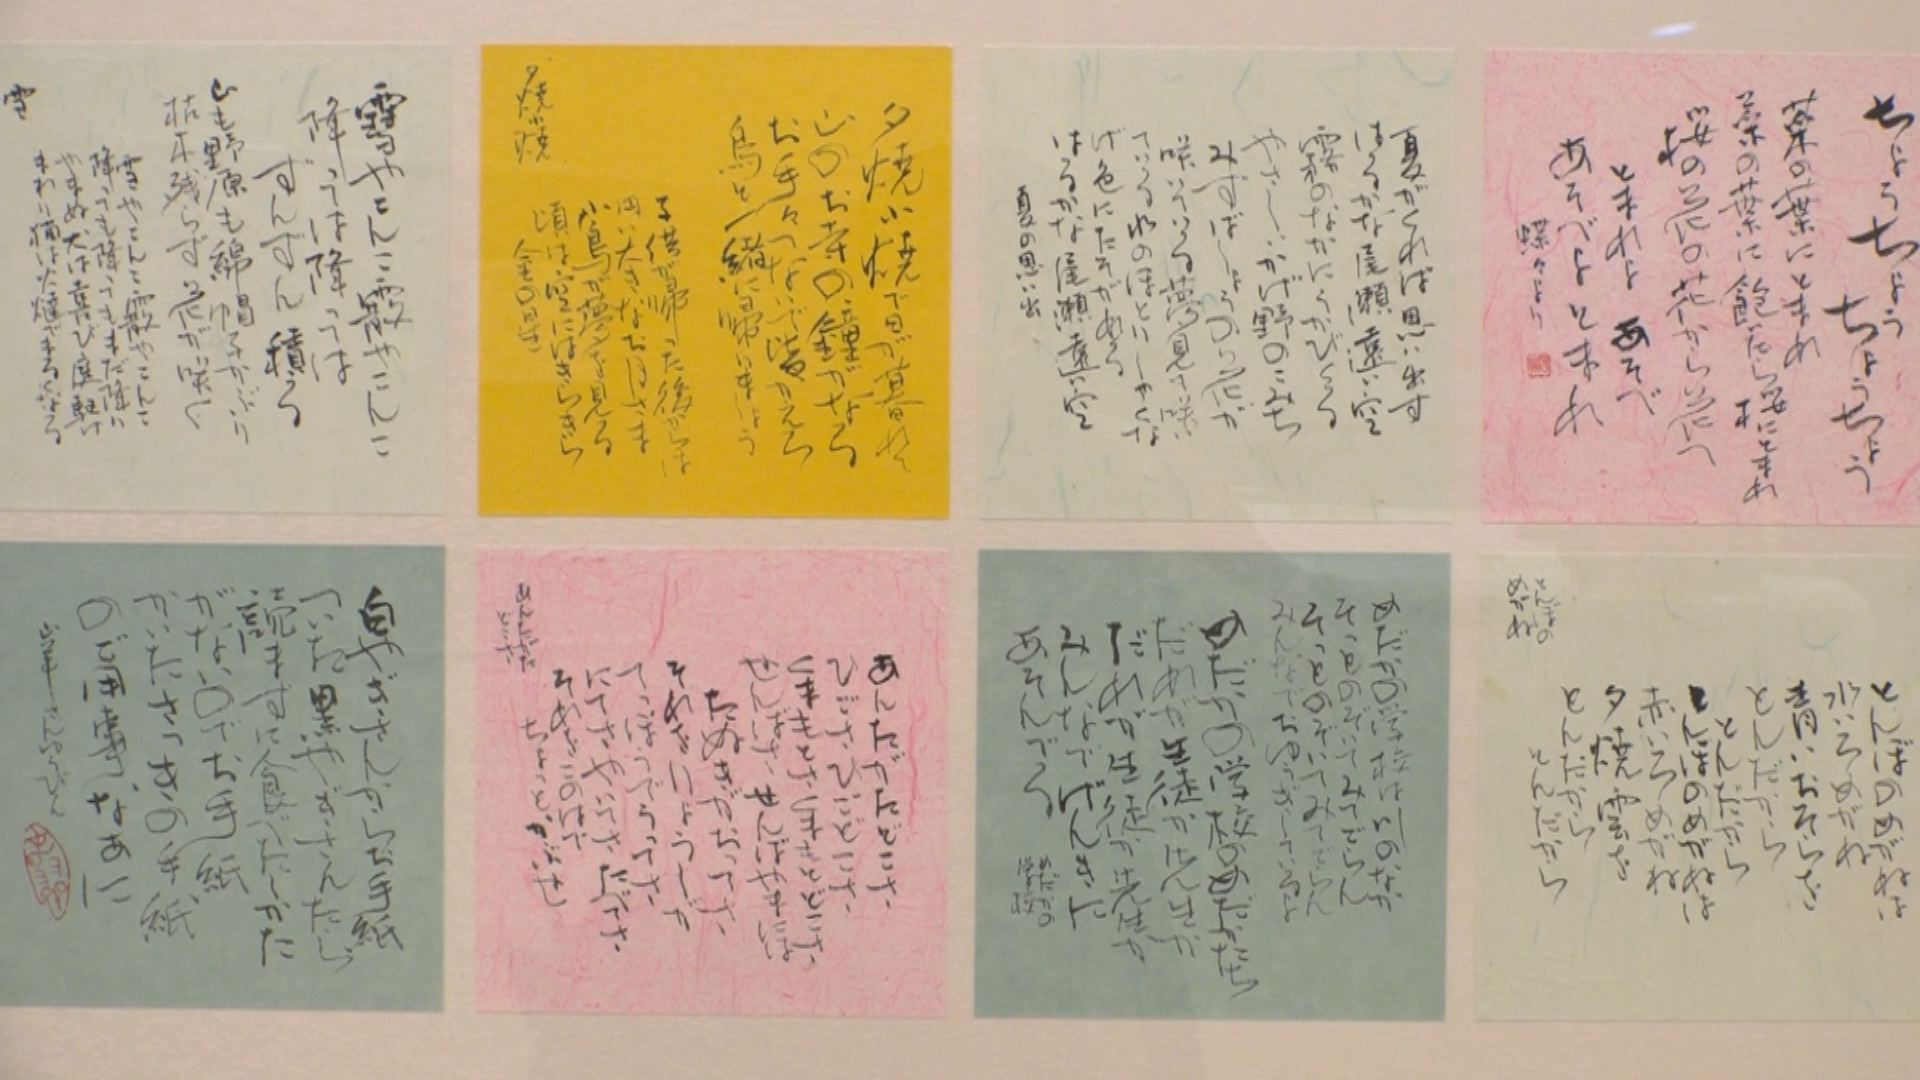 雪やこんこ霰やこんこ
降っては降っては
ずんずん積る
山も野原も綿帽子かぶり
枯木残らず花が咲く
雪やこんこ霰やこんこ
降っても降ってもまだ降り
やまぬ犬は喜び庭駆け
まわり猫は火燵でまるくなる
雪
夕焼小焼で日が暮れて
山のお寺の鐘がなる
お手々つないで皆かえろ
烏と一緒に帰りましょう
子供が帰った後からは
円い大きなお月さま
小鳥が夢を見る
頃は空にはきらきら
金の星
夕焼小焼
夏がくれば思い出す
はるかな尾瀬遠い空
霧のなかにうかびくる
やさしいかげ野のこみち
みずばしょうの花が
咲いている夢見て咲い
ている水のほとりしゃくな
げ色にたそがれる
はるかな尾瀬遠い空
夏の思い出
ちょうちょう
ちょうちょう
菜の葉にとまれ
菜の葉に飽いたら桜にとまれ
桜の花の花から花へ
とまれよあそべ
あそべよとまれ
蝶々より
白やぎさんからお手紙
ついた黒やぎさんたら
読まずに食べたしかた
がないのでお手紙
かいたさっきの手紙
のご用事なあに
山羊さんゆうびん
あんたがたどこさ
ひごさひごどこさ
くまもとさくまもとどこさ
せんばさせんばやまには
たぬきがおってさ
それをりょうしが
てっぽうでうってさ
にてさやいてさたべてさ
それをこのはで
ちょっとかぶせ
あんたがたどこさ
めだかの学校は川のなか
そっとのぞいてみてごらん
そっとのぞいてみてごらん
みんなでおゆうぎしているよ
めだかの学校のめだかたち
だれが生徒か先生か
だれが生徒か先生か
みんなでげんきに
あそんでる
めだかの
学校
とんぼのめがねは
水いろめがね
青いおそらを
とんだから
とんだから
とんぼのめがねは
赤いろめがね
夕焼雲を
とんだから
とんだから
とんぼの
めがね